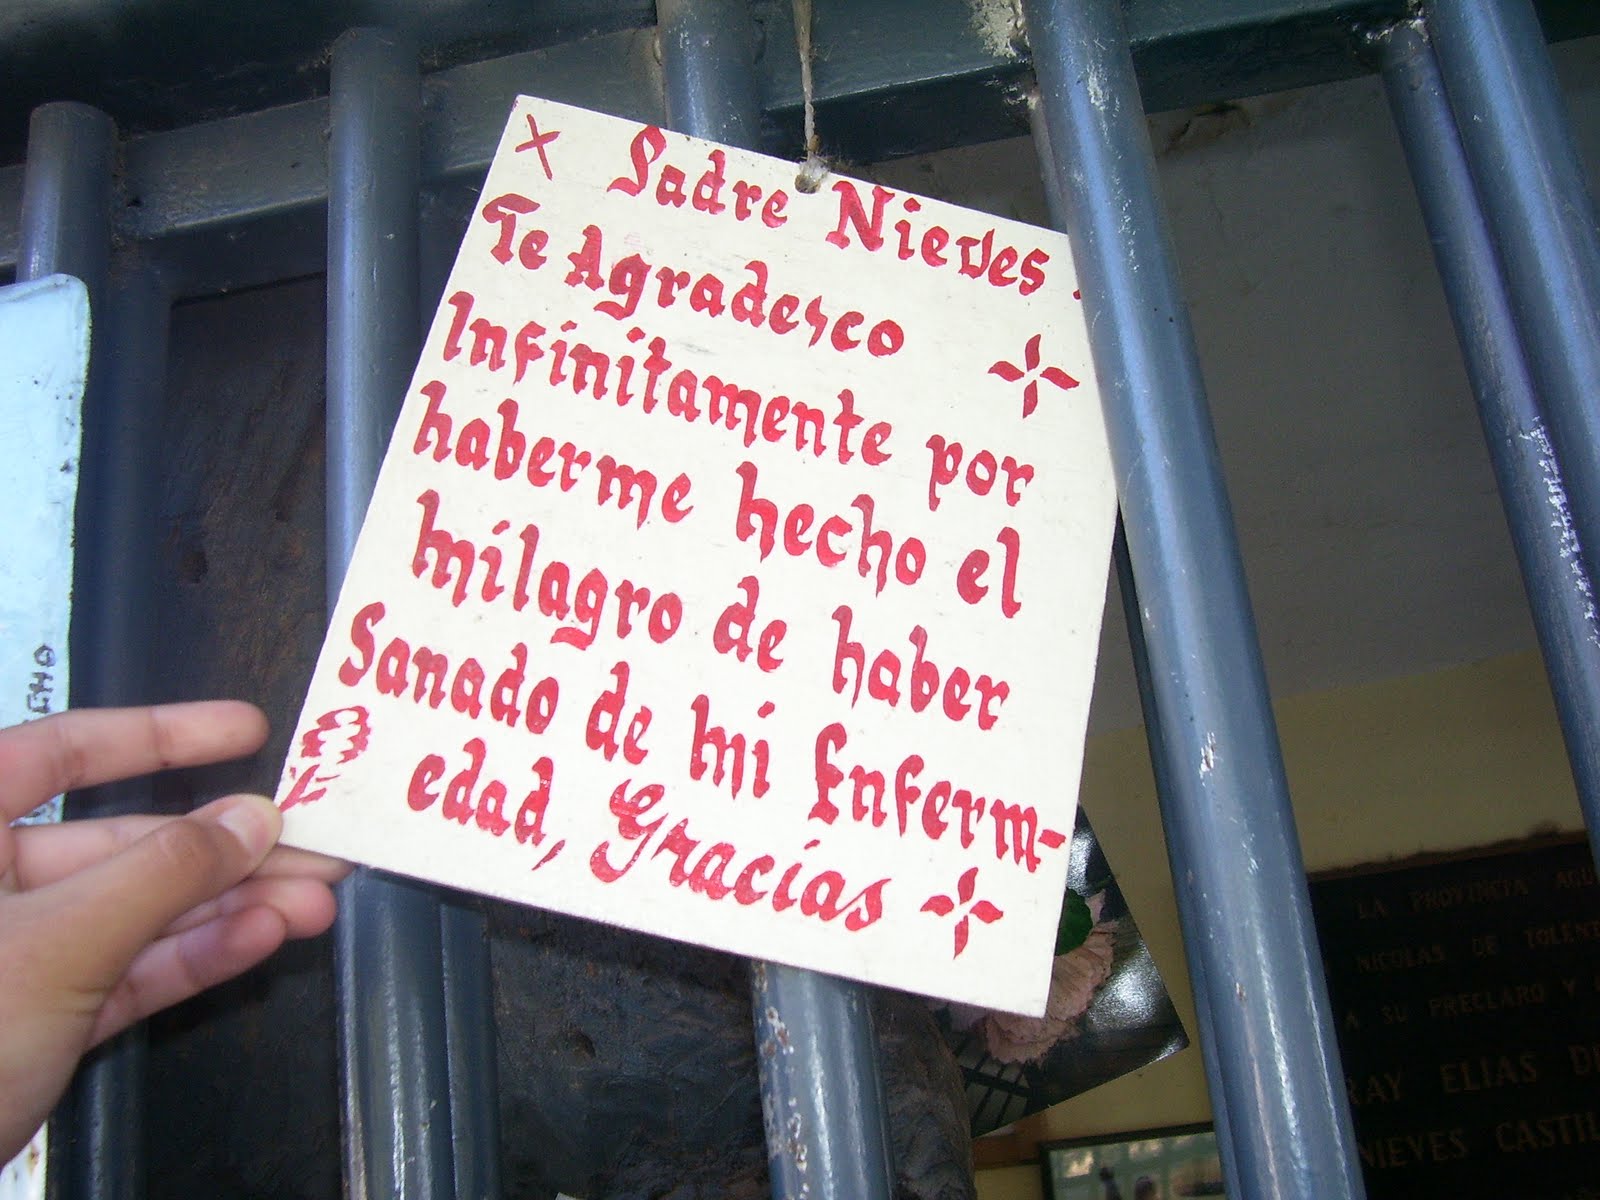 Padre Nieves.
Te Agradesco
Infinitamente por
haberme hecho el
milagro de haber
Sanado de mi Enferm-
edad, Gracias
LA PROVINCIA
NICOLAS DE
A SU PRECLARO Y
ELIAS
NIEVES